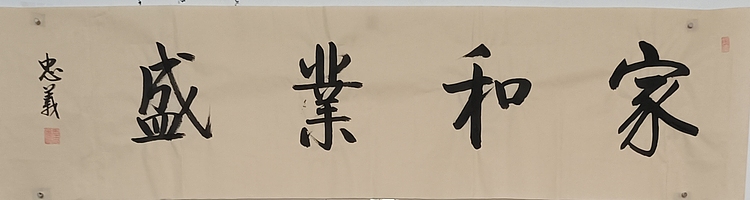 家和業盛
忠義